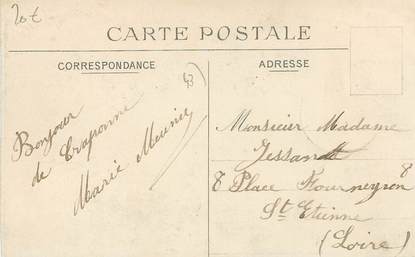 20€
CARTE POSTALE
CORRESPONDANCE
ADRESSE
43
Bonjour
de Craponne
Marie Meunier
Monsieur Madame
8 Place Fourneyron 8
St Etienne
(Loire)